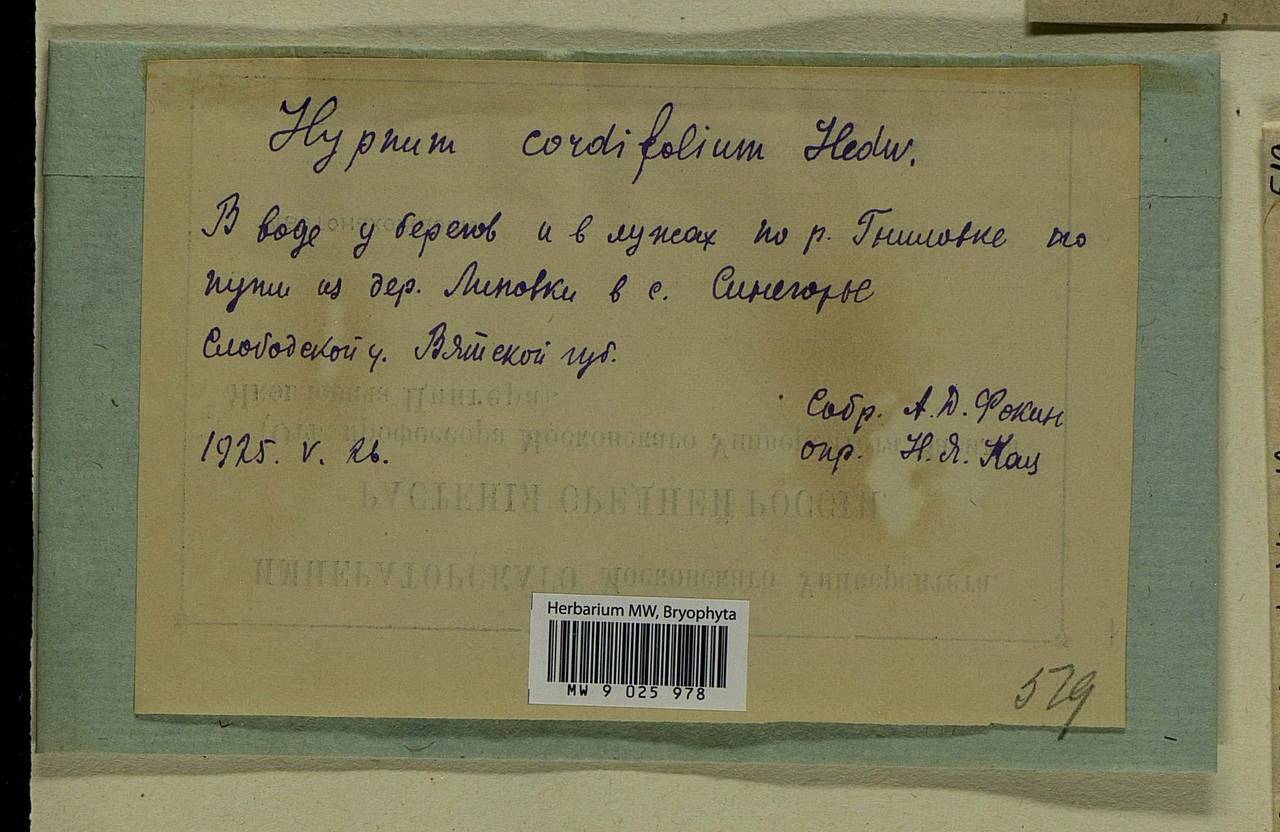 Hypnum cordifolium Hedw.
В воде у берегов и в лужах по р. Гниловке по
пути из дер. Липовки в с. Синегорье
Слободской у. Вятской губ.
Собр. А.Д. Фокин
1925. V. 26.
опр. Н.Я. Кац
РАСТЕНІЯ СРЕДНЕЙ РОССІИ
ИМПЕРАТОРСКАГО Московскаго Университета.
Herbarium MW, Bryophyta
MW 9 025 978
579